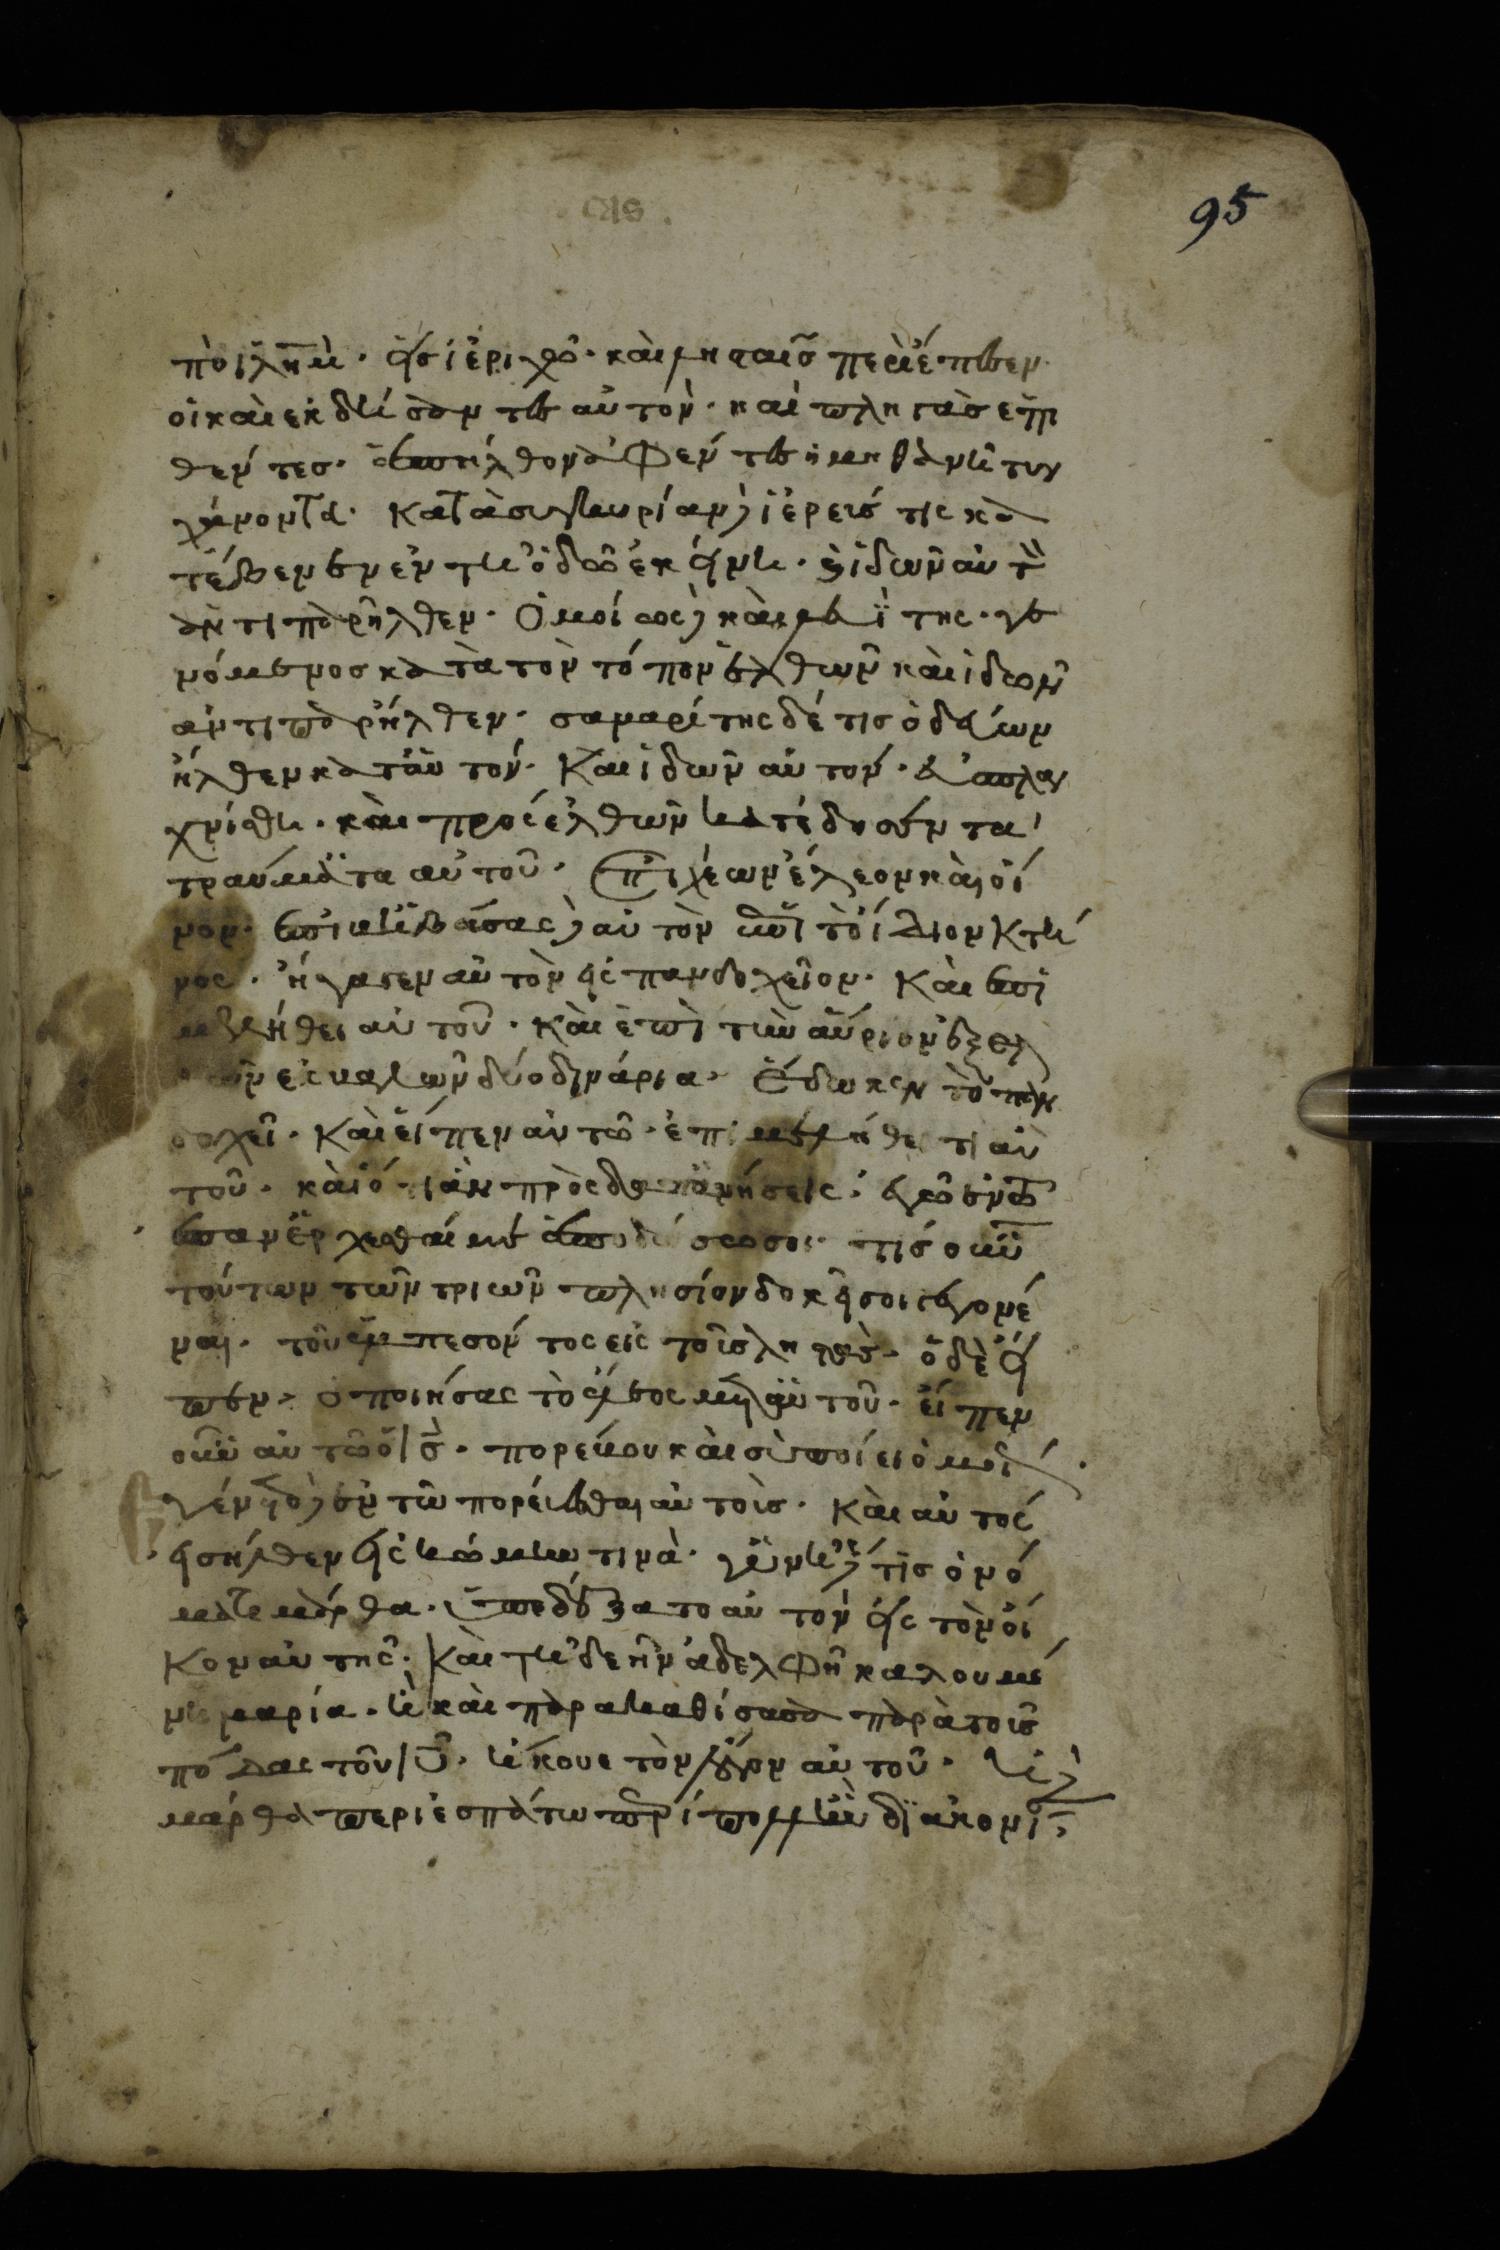 95
πὸ ἰλῆμ· εἰς ἱεριχῶ· καὶ λησταῖς περιέπεσεν·
οἳ καὶ ἐκδύσαντες αὐτὸν· καὶ πληγὰς ἐπι
θέντες· ἀπῆλθον ἀφέντες ἡμηθανῆ τυγ
χάνοντα· Κατὰ συγκυρίαν δὲ ἱερεύς τις κα
τέβαινεν ἐν τῇ ὁδῷ ἐκείνῃ· καὶ ἰδὼν αὐτὸν
ἀντιπαρῆλθεν· Ὁμοίως δὲ καὶ λευΐτης· γε
νόμενος κατὰ τὸν τόπον ἐλθὼν καὶ ἰδὼν
ἀντιπαρῆλθεν· σαμαρίτης δέ τις ὁδεύων
ἦλθεν κατ' αὐτόν· Καὶ ἰδὼν αὐτὸν· ἐσπλαγ
χνίσθη· καὶ προσελθὼν κατέδησεν τὰ
τραύματα αὐτοῦ· Ἐπιχέων ἔλεον καὶ οἶ
νον· ἐπιβιβάσας δὲ αὐτὸν ἐπὶ τὸ ἴδιον κτῆ
νος· ἤγαγεν αὐτὸν εἰς πανδοχεῖον· Καὶ ἐπε
μελήθει αὐτοῦ· καὶ ἐπὶ τὴν αὔριον ἐξελ
θὼν ἐκβαλὼν δύο δινάρια· Ἔδωκεν τῷ παν
δοχεῖ· Καὶ εἶπεν αὐτῷ· ἐπιμελήθητι αὐ
τοῦ· καὶ ὅτι ἂν προσδαπανήσεις· ἐγὼ ἐν τῷ
ἐπανέρχεσθαί με ἀποδώσω σοι· τίς οὖν
τούτων τῶν τριῶν πλησίον δοκεῖ σοι γεγονέ
ναι· τοῦ ἐμπεσόντος εἰς τοὺς ληστάς· ὁ δὲ εἶ
πεν· ὁ ποιήσας τὸ ἔλεος μετ' αὐτοῦ· εἶπεν
οὖν αὐτῷ ὁ ἰς· πορεύου καὶ σὺ ποίει ὁμοί·
Ἐγένετο δὲ ἐν τῷ πορεύεσθαι αὐτοῖς· Καὶ αὐτὸς
εἰσῆλθεν εἰς κώμην τινὰ· γυνὴ δέ τις ὀνό
ματι μάρθα· ὑπεδέξατο αὐτὸν εἰς τὸν οἶ
κον αὐτῆς· Καὶ τῇδε ἦν ἀδελφὴ καλουμέ
νη μαρία· ἣ καὶ παρακαθίσασα παρὰ τοὺς
πόδας τοῦ ἰῦ· ἤκουε τὸν λόγον αὐτοῦ· ἡ δὲ
μάρθα περιεσπάτω περὶ πολλὴν διακονί